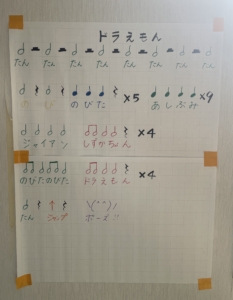 ドラえもん
たん たん たん たん たん たん たん たん
のび のびた ×5 あしぶみ ×9
ジャイアン しずかちゃん ×4
のびたのびた ドラえもん ×4
たん ジャンプ ポーズ!!